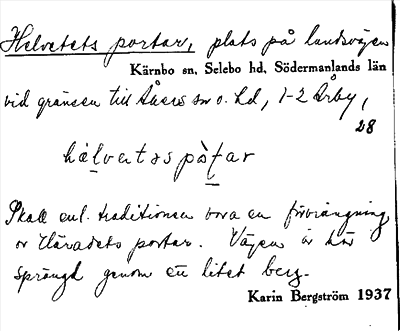 Helvetets portar, plats på landsvägen
Kärnbo sn, Selebo hd, Södermanlands län
vid gränsen till Åkers sn o. hd, 1-2 Årby,
28
hälvətəs pòṭar
Skall enl. traditionen vara en förvrängning
av Häradets portar. Vägen är här
sprängd genom ett litet berg.
Karin Bergström 1937